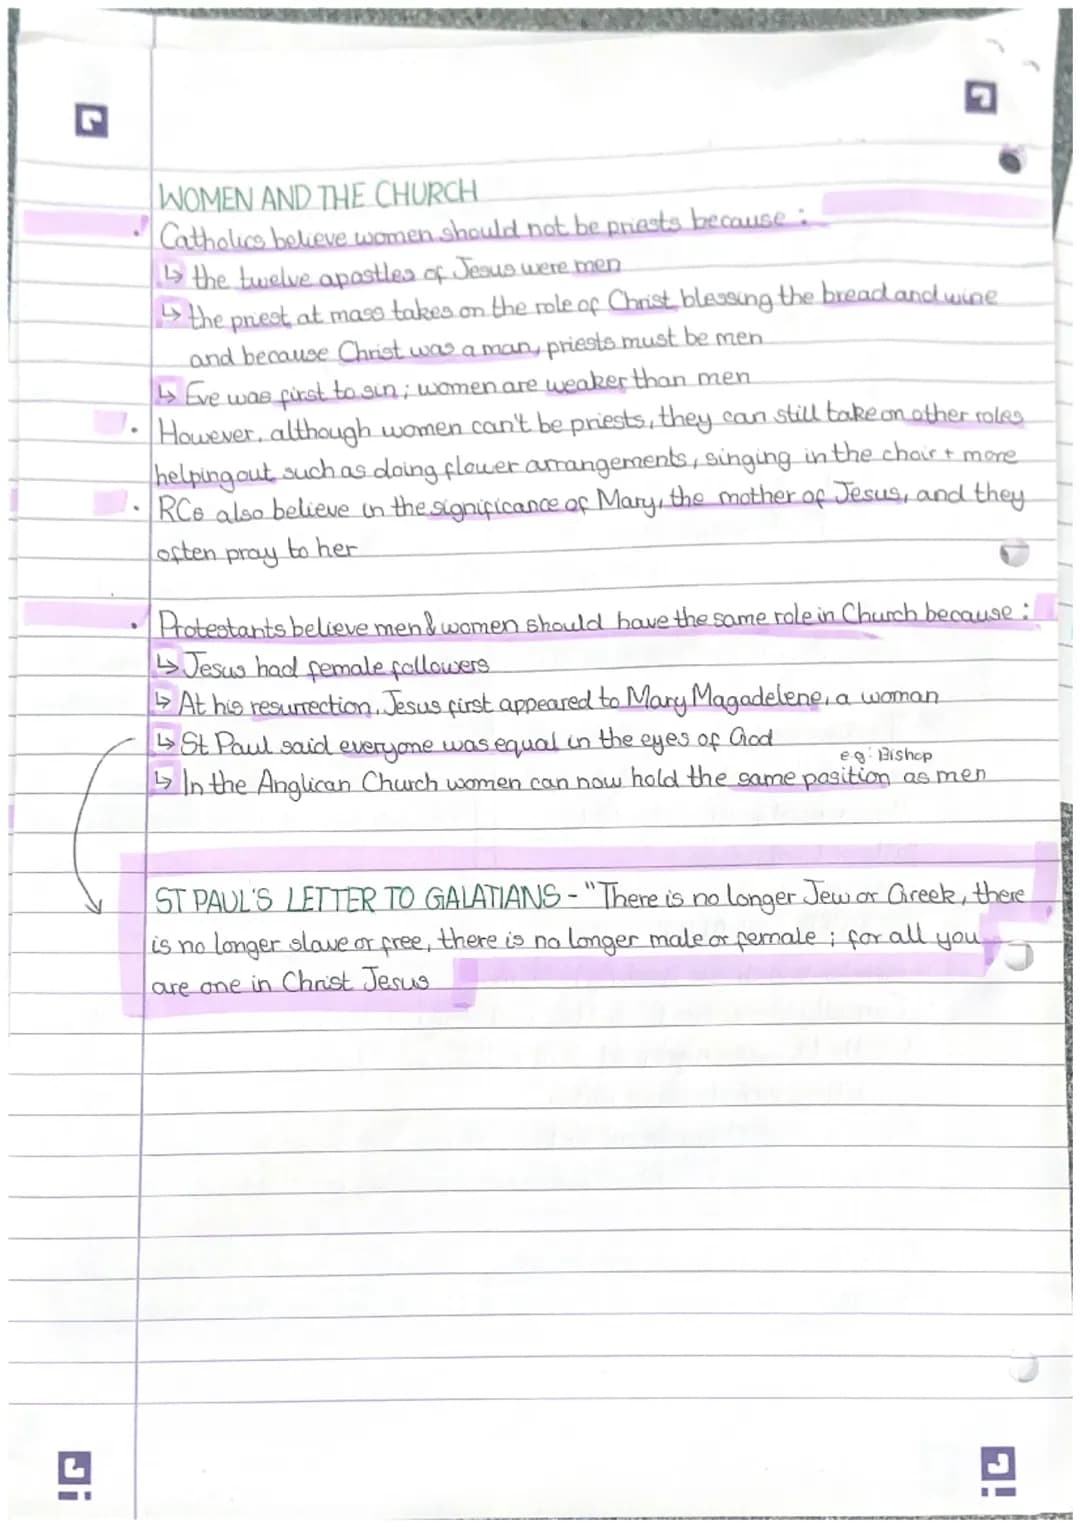 WOMEN AND THE CHURCH
• Catholics believe women should not be priests because :
↳ the twelve apostles of Jesus were men
↳ the priest at mass takes on the role of Christ blessing the bread and wine
and because Christ was a man, priests must be men
↳ Eve was first to sin; women are weaker than men
• However, although women can't be priests, they can still take on other roles
helping out such as doing flower arrangements, singing in the choir + more
• RCs also believe in the significance of Mary, the mother of Jesus, and they
often pray to her
• Protestants believe men & women should have the same role in Church because :
↳ Jesus had female followers
↳ At his resurrection, Jesus first appeared to Mary Magadelene, a woman
↳ St Paul said everyone was equal in the eyes of God
e.g: Bishop
↳ In the Anglican Church women can now hold the same position as men
ST PAUL'S LETTER TO GALATIANS - "There is no longer Jew or Greek, there
is no longer slave or free, there is no longer male or female ; for all you
are one in Christ Jesus